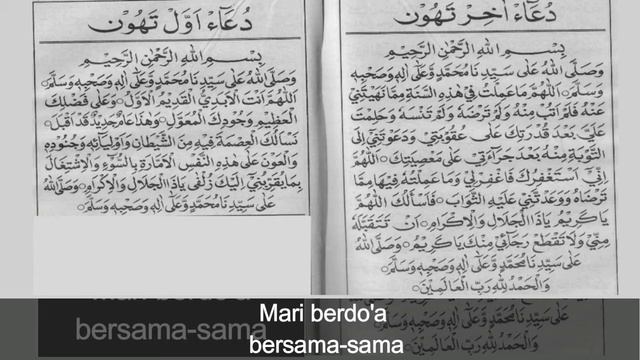 دُعَاءْ اٰخِرْ تَهُوْنْ
بِسْمِ اللهِ الرَّحْمٰنِ الرَّحِيْمِ
وَصَلَّى اللهُ عَلٰى سَيِّدِنَا مُحَمَّدٍ وَّعَلٰى اٰلِهٖ وَصَحْبِهٖ
وَسَلَّمَ ○ اَللّٰهُمَّ مَا عَمِلْتُ فِيْ هٰذِهِ السَّنَةِ مِمَّا نَهَيْتَنِيْ
عَنْهُ فَلَمْ اَتُبْ مِنْهُ وَلَمْ تَرْضَهُ وَلَمْ تَنْسَهُ وَحَلِمْتَ
عَلَيَّ بَعْدَ قُدْرَتِكَ عَلٰى عُقُوْبَتِيْ وَدَعَوْتَنِيْ اِلَى
التَّوْبَةِ مِنْهُ بَعْدَ جَرَاءَتِيْ عَلٰى مَعْصِيَتِكَ ○ اَللّٰهُمَّ
اِنِّيْ اَسْتَغْفِرُكَ فَاغْفِرْلِيْ وَمَا عَمِلْتُهُ فِيْهَا مِمَّا
تَرْضَاهُ وَوَعَدْتَّنِيْ عَلَيْهِ الثَّوَابَ ○ فَاَسْأَلُكَ اللّٰهُمَّ
يَا كَرِيْمُ يَا ذَا الْجَلَالِ وَالْاِكْرَامِ ○ اَنْ تَتَقَبَّلَهُ
مِنِّيْ وَلَا تَقْطَعْ رَجَائِيْ مِنْكَ يَا كَرِيْمُ ○ وَصَلَّى اللهُ
عَلٰى سَيِّدِنَا مُحَمَّدٍ وَّعَلٰى اٰلِهٖ وَصَحْبِهٖ وَسَلَّمَ ○
وَالْحَمْدُ لِلّٰهِ رَبِّ الْعَالَمِيْنَ ○
دُعَاءْ اَوَّلْ تَهُوْنْ
بِسْمِ اللهِ الرَّحْمٰنِ الرَّحِيْمِ
وَصَلَّى اللهُ عَلٰى سَيِّدِنَا مُحَمَّدٍ وَّعَلٰى اٰلِهٖ وَصَحْبِهٖ وَسَلَّمَ ○
اَللّٰهُمَّ اَنْتَ الْاَبَدِيُّ الْقَدِيْمُ الْاَوَّلُ ○ وَعَلٰى فَضْلِكَ
الْعَظِيْمِ وَجُوْدِكَ الْمُعَوَّلُ ○ وَهٰذَا عَامٌ جَدِيْدٌ قَدْ اَقْبَلَ ○
نَسْأَلُكَ الْعِصْمَةَ فِيْهِ مِنَ الشَّيْطَانِ وَاَوْلِيَائِهٖ وَجُنُوْدِهٖ
وَالْعَوْنَ عَلٰى هٰذِهِ النَّفْسِ الْاَمَّارَةِ بِالسُّوْءِ وَالْاِشْتِغَالَ
بِمَا يُقَرِّبُنِيْ اِلَيْكَ زُلْفٰى يَا ذَا الْجَلَالِ وَالْاِكْرَامِ ○ وَصَلَّى اللهُ
عَلٰى سَيِّدِنَا مُحَمَّدٍ وَّعَلٰى اٰلِهٖ وَصَحْبِهٖ وَسَلَّمَ ○
عَلٰى سَيِّدِنَا مُحَمَّدٍ وَّعَلٰى اٰلِهٖ وَصَحْبِهٖ وَسَلَّمَ ○
وَالْحَمْدُ لِلّٰهِ رَبِّ الْعَالَمِيْنَ ○
Mari berdo'a
bersama-sama
Mari berdo'a
bersama-sama